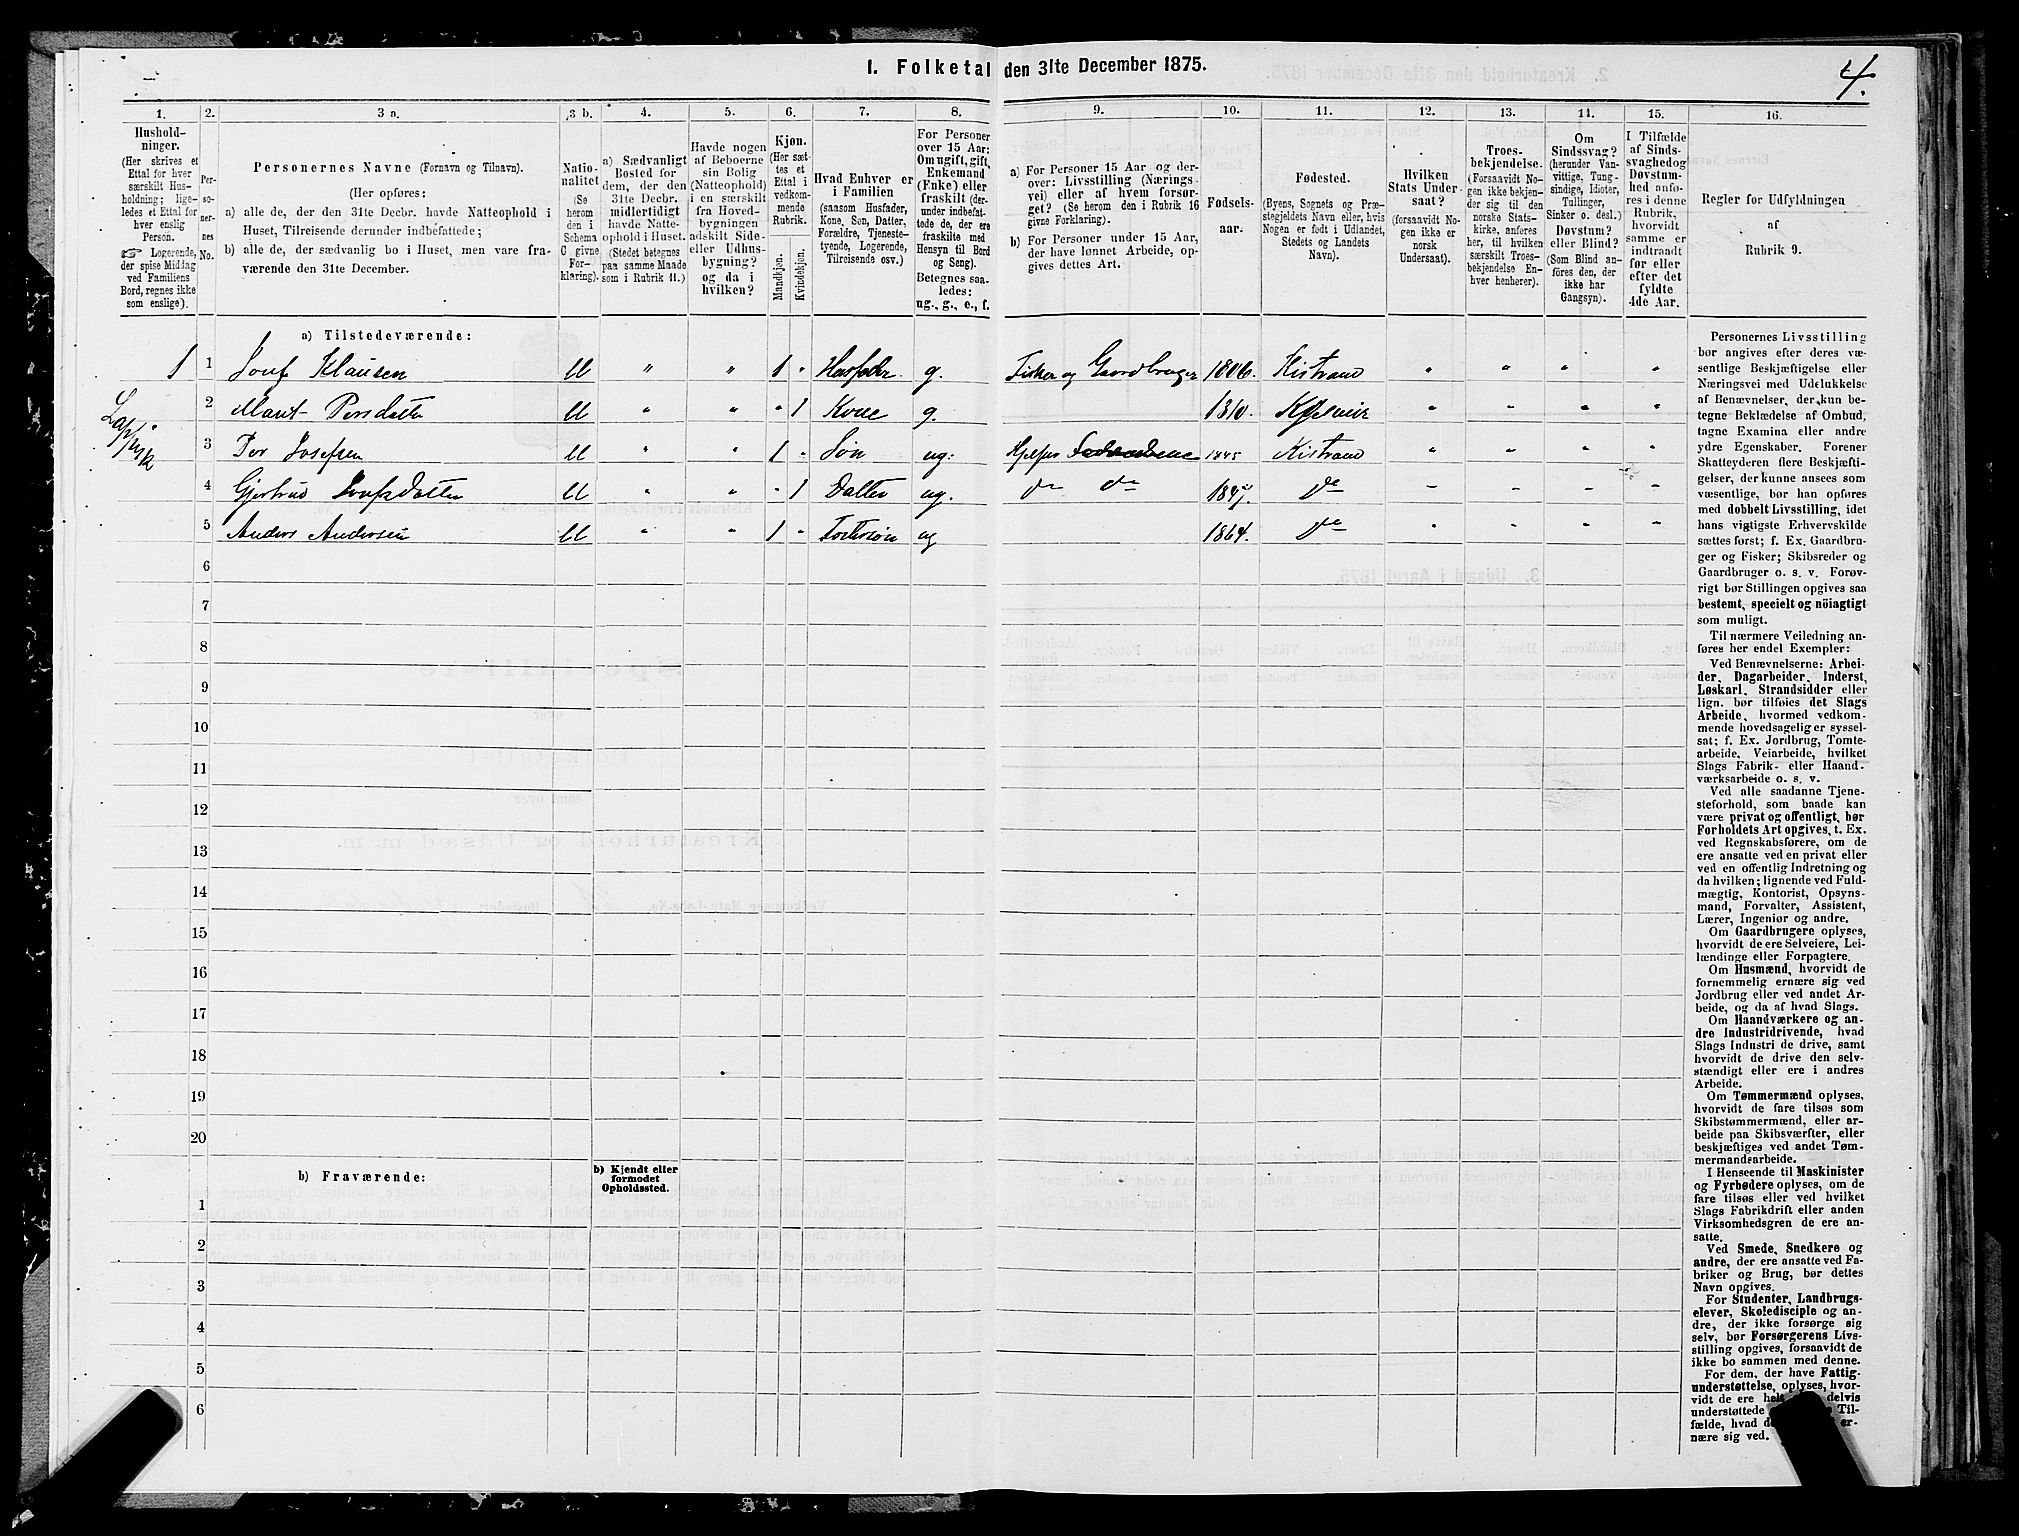 1. Folketal den 31te December 1875.
4.
1.
Hushold-
ninger.
(Her skrives et
Ettal for hver
særskilt Hus-
holdning; lige-
ledes et Ettal for
hver enslig
Person.
☞ Logerende,
der spise Middag
ved Familiens
Bord, regnes ikke
som enslige).
2.
Per-
so-
ner-
nes
No.
3 a.
Personernes Navne (Fornavn og Tilnavn).
(Her opføres:
a) alle de, der den 31te Decbr. havde Natteophold i
Huset, Tilreisende derunder indbefattede;
b) alle de, der sædvanlig bo i Huset, men vare fra-
værende den 31te December.
3 b.
Natio-
nalitet
(Se
herom
den i
Schema
C givne
For-
klaring).
4.
a) Sædvanligt
Bosted for
dem, der den
31te Decbr.
midlertidigt
havde Natte-
ophold i Huset.
(Stedet betegnes
paa samme Maade
som i Rubrik 11.)
5.
Havde nogen
af Beboerne
sin Bolig
(Natteophold)
i en særskilt
fra Hoved-
bygningen
adskilt Side-
eller Udhus-
bygning?
og da i
hvilken?
6.
Kjøn.
(Her sæt-
tes et
Ettal i
vedkom-
mende
Rubrik.
Mandkjøn.
Kvindekjøn.
7.
Hvad Enhver er
i Familien
(saasom Husfader,
Kone, Søn, Datter,
Forældre, Tjeneste-
tyende, Logerende,
Tilreisende osv.)
8.
For Personer
over 15 Aar:
Om ugift, gift,
Enkemand
(Enke) eller
fraskilt (der-
under indbefat-
tede de, der ere
fraskilte med
Hensyn til Bord
og Seng).
Betegnes saa-
ledes:
ug., g., e., f.
9.
a) For Personer 15 Aar og der-
over: Livsstilling (Nærings-
vei) eller af hvem forsør-
get? (Se herom den i Rubrik 16
givne Forklaring).
b) For Personer under 15 Aar,
der have lønnet Arbeide, op-
gives dettes Art.
10.
Fødsels-
aar.
11.
Fødested.
(Byens, Sognets og Præ-
stegjeldets Navn eller, hvis
Nogen er født i Udlandet,
Stedets og Landets
Navn).
12.
Hvilken
Stats Under-
saat?
(forsaavidt No-
gen ikke er
norsk
Undersaat).
13.
Troes-
bekjendelse.
(Forsaavidt No-
gen ikke bekjen-
der sig til den
norske Stats-
kirke, anføres
her, til hvilken
særskilt Troes-
bekjendelse En-
hver henhører).
14.
Om
Sindssvag?
(herunder Van-
vittige, Tung-
sindige, Idioter,
Tullinger,
Sinker o. desl.)
Døvstum?
eller Blind?
(Som Blind an-
føres den, der
ikke har
Gangsyn).
15.
I Tilfælde
af Sinds-
svaghed og
Døvstum-
hed anfø-
res i denne
Rubrik,
hvorvidt
samme er
indtraadt
før eller
efter det
fyldte
4de Aar.
16.
Regler for Udfyldningen
af
Rubrik 9.
a) Tilstedeværende:
1 1 Josef Klausen ll " " 1 " Husfader g. Fisker og Gaardbruger 1806. Kistrand " " " "
Lappisk
2 Marit Persdatter ll " " " 1 Kone g. 1810. Kjelvik " " " "
3 Per Josefsen ll " " 1 " Søn ug: Hjelper Forældrene 1845 Kistrand " " " "
4 Gjertrud Josefsdatter ll " " " 1 Datter ug. do do do " " " "
5 Anders Andersen ll " " 1 " Fostersøn ug 1864. do " " " "
6
7
8
9
10
11
12
13
14
15
16
17
18
19
20
b) Fraværende:
b) Kjendt eller
formodet
Opholdssted.
1
2
3
4
5
6
Personernes Livsstilling
bør angives efter deres væ-
sentlige Beskjæftigelse eller
Næringsvei med Udelukkelse
af Benævnelser, der kun be-
tegne Beklædelse af Ombud,
tagne Examina eller andre
ydre Egenskaber. Forener
Skatteyderen flere Beskjæfti-
gelser, der kunne ansees som
væsentlige, bør han opføres
med dobbelt Livsstilling, idet
hans vigtigste Erhvervskilde
sættes først; f. Ex. Gaardbru-
ger og Fisker; Skibsreder og
Gaardbruger o. s. v. Forøv-
rigt bør Stillingen opgives saa
bestemt, specielt og nöiagtigt
som muligt.
Til nærmere Veiledning an-
føres her endel Exempler:
Ved Benævnelserne: Arbei-
der, Dagarbeider, Inderst,
Løskarl, Strandsidder eller
lign. bør tilføies det Slags
Arbeide, hvormed vedkom-
mende hovedsagelig er syssel-
sat; f. Ex. Jordbrug, Tomte-
arbeide, Veiarbeide, hvilket
Slags Fabrik- eller Haand-
værksarbeide o. s. v.
Ved alle saadanne Tjene-
steforhold, som baade kan
være privat og offentligt, bør
Forholdets Art opgives, t. Ex.
ved Regnskabsførere, om de
ere ansatte ved en privat eller
ved en offentlig Indretning og
da hvilken; lignende ved Fuld-
mægtig, Kontorist, Opsyns-
mand, Forvalter, Assistent,
Lærer, Ingeniør og andre.
Om Gaardbrugere oplyses,
hvorvidt de ere Selveiere, Lei-
lændinge eller Forpagtere.
Om Husmænd, hvorvidt de
fornemmelig ernære sig ved
Jordbrug eller ved andet Ar-
beide, og da af hvad Slags.
Om Haandværkere og an-
dre Industridrivende, hvad
Slags Industri de drive, samt
hvorvidt de drive den selv-
stændigt eller ere i andres
Arbeide.
Om Tømmermænd oplyses,
hvorvidt de fare tilsøs som
Skibstømmermænd, eller ar-
beide paa Skibsværfter, eller
beskjæftiges ved andet Tøm-
mermandsarbeide.
I Henseende til Maskinister
og Fyrbødere oplyses, om de
fare tilsøs eller ved hvilket
Slags Fabrikdrift eller anden
Virksomhedsgren de ere an-
satte.
Ved Smede, Snedkere og
andre, der ere ansatte ved Fa-
briker og Brug, bør dettes
Navn opgives.
For Studenter, Landbrugs-
elever, Skoledisciple og an-
dre, der ikke forsørge sig
selv, bør Forsørgerens Livs-
stilling opgives, forsaavidt de
ikke bo sammen med denne.
For dem, der have Fattig-
understøttelse, oplyses, hvor-
vidt de ere helt delvis
understøttede Til-
fælde, hvad er-
nære sig ved.